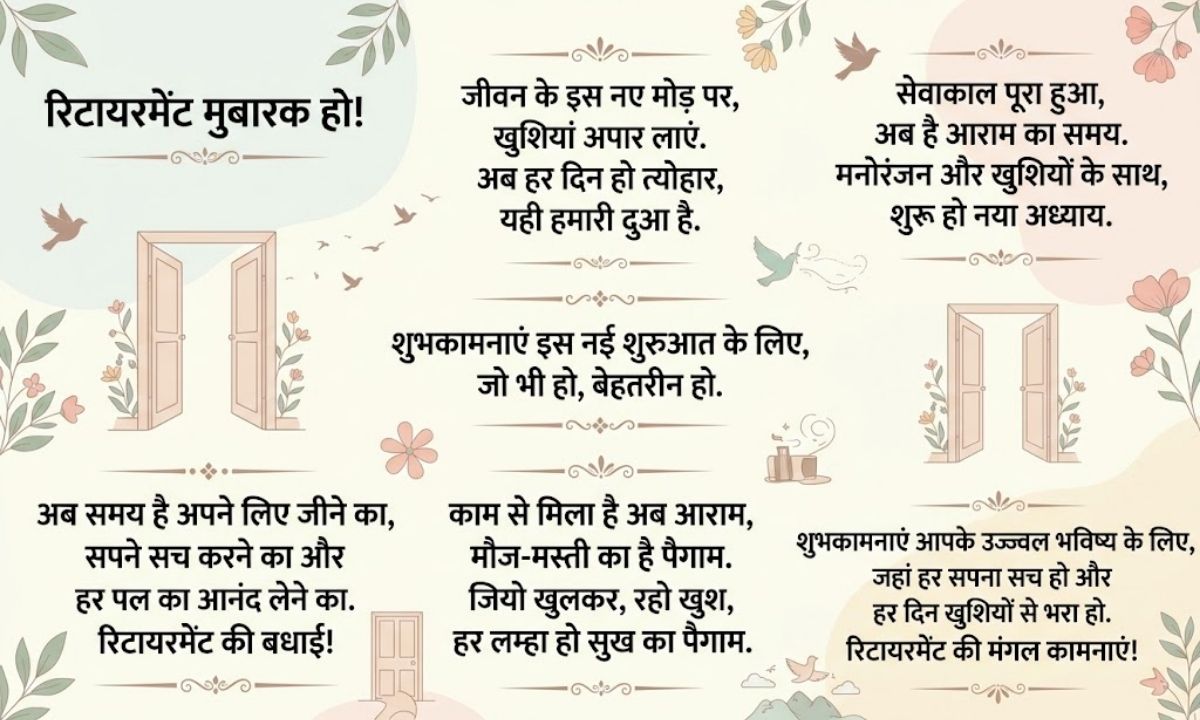 रिटायरमेंट मुबारक हो!
जीवन के इस नए मोड़ पर,
खुशियां अपार लाएं.
अब हर दिन हो त्योहार,
यही हमारी दुआ है.
सेवाकाल पूरा हुआ,
अब है आराम का समय.
मनोरंजन और खुशियों के साथ,
शुरू हो नया अध्याय.
शुभकामनाएं इस नई शुरुआत के लिए,
जो भी हो, बेहतरीन हो.
अब समय है अपने लिए जीने का,
सपने सच करने का और
हर पल का आनंद लेने का.
रिटायरमेंट की बधाई!
काम से मिला है अब आराम,
मौज-मस्ती का है पैगाम.
जियो खुलकर, रहो खुश,
हर लम्हा हो सुख का पैगाम.
शुभकामनाएं आपके उज्ज्वल भविष्य के लिए,
जहां हर सपना सच हो और
हर दिन खुशियों से भरा हो.
रिटायरमेंट की मंगल कामनाएं!